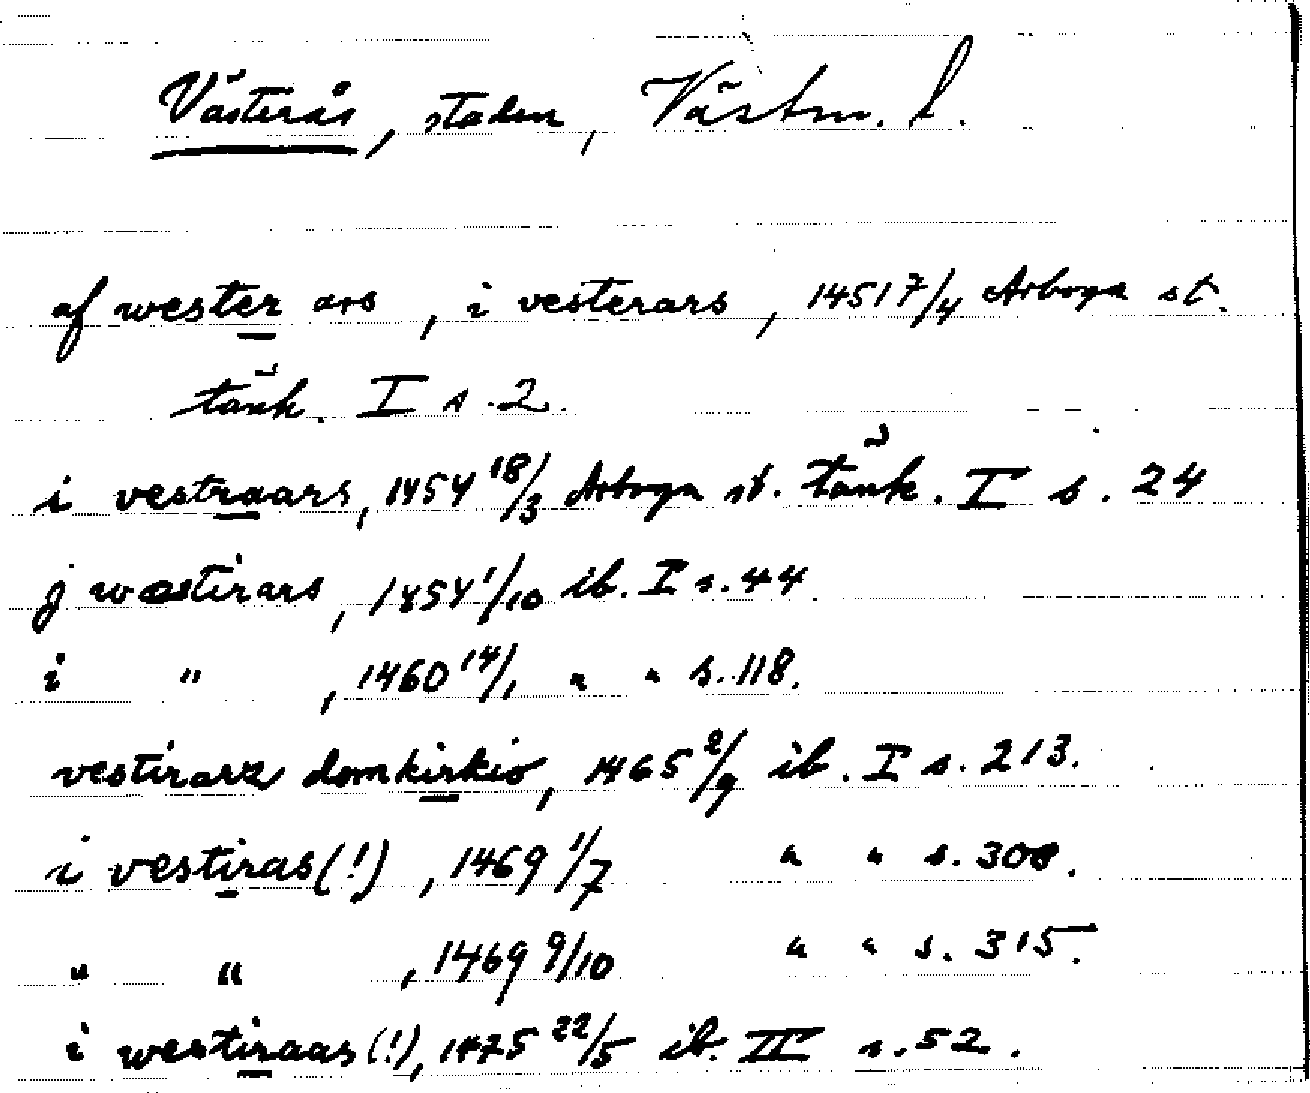 Västerås, staden, Västm. l.
af wester ars, i vesterars, 1451 7/4 Arboga st.
tänk. I s. 2.
i vestraars, 1454 18/3 Arboga st. tänk. I s. 24
j wæstirars, 1454 1/10 ib. I s. 44.
i " , 1460 14/1 " " s. 118.
vestirarz domkirkio, 1465 2/9 ib. I s. 213.
i vestiras (!), 1469 1/7 " " s. 308.
" " , 1469 9/10 " " s. 315.
i westiraas (!), 1475 22/5 ib. II s. 52.